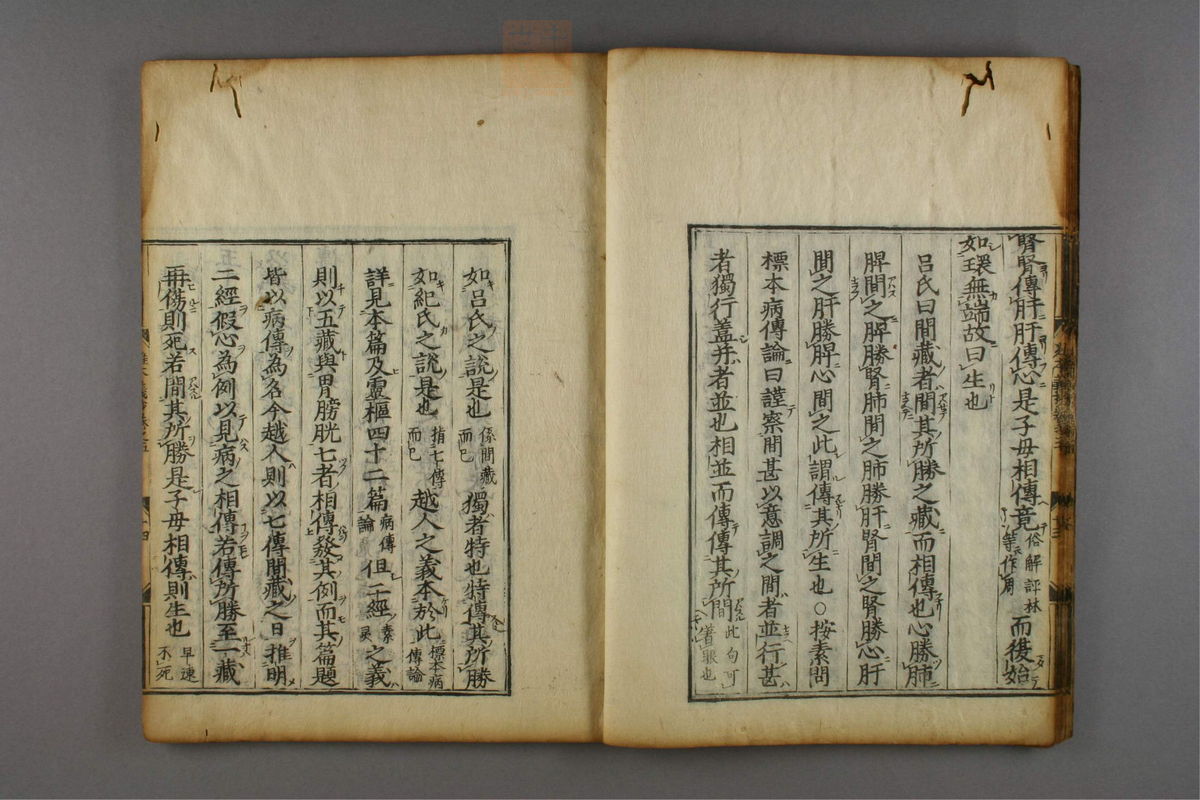 腎腎傳肝肝傳心是子母相傳竟俗解評林等作周而復始
如環無端故曰生也
呂氏曰間藏者間其所勝之藏而相傳也心勝肺
脾間之脾勝腎肺間之肺勝肝腎間之腎勝心肝
間之肝勝脾心間之此謂傳其所生也○按素問
標本病傳論曰謹察間甚以意調之間者並行甚
者獨行蓋并者並也相並而傳傳其所間此句可著眼也
如呂氏之說是也係間藏而已獨者特也特傳其所勝
如紀氏之說是也指七傳而已越人之義本於此標本病傳論
詳見本篇及靈樞四十二篇病傳論但二經素灵之義
則以五藏與胃膀胱七者相傳發其例而其篇題
皆以病傳為名今越人則以七傳間藏之日推明
二經假心為例以見病之相傳若傳所勝至一藏
再傷則死若間其所勝是子母相傳則生也早速不死